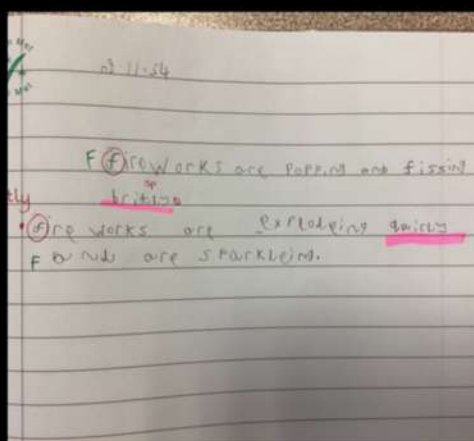 11.54
F fireworks are popping and fissing
sp
tly britly.
fire works are explodeing quicly
F and are sparkleing.